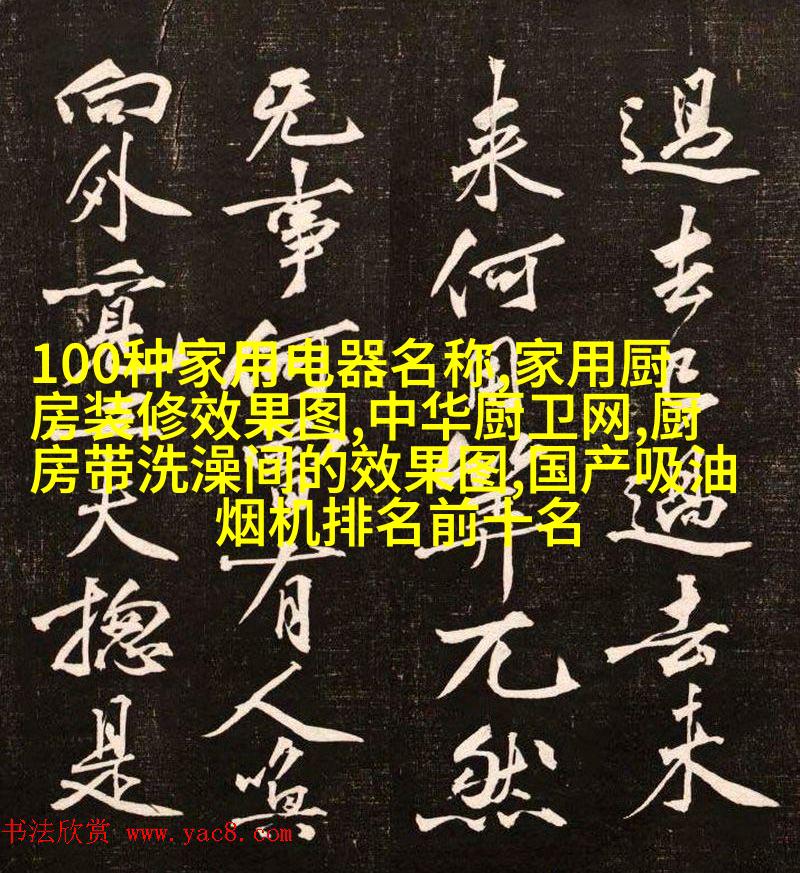 過去已過去未
来何用算兀然
无事何曾有人喚
向外覓工夫揔是
100种家用电器名称,家用厨
房装修效果图,中华厨卫网,厨
房带洗澡间的效果图,国产吸油
烟机排名前十名
书法欣赏 www.yac8.com